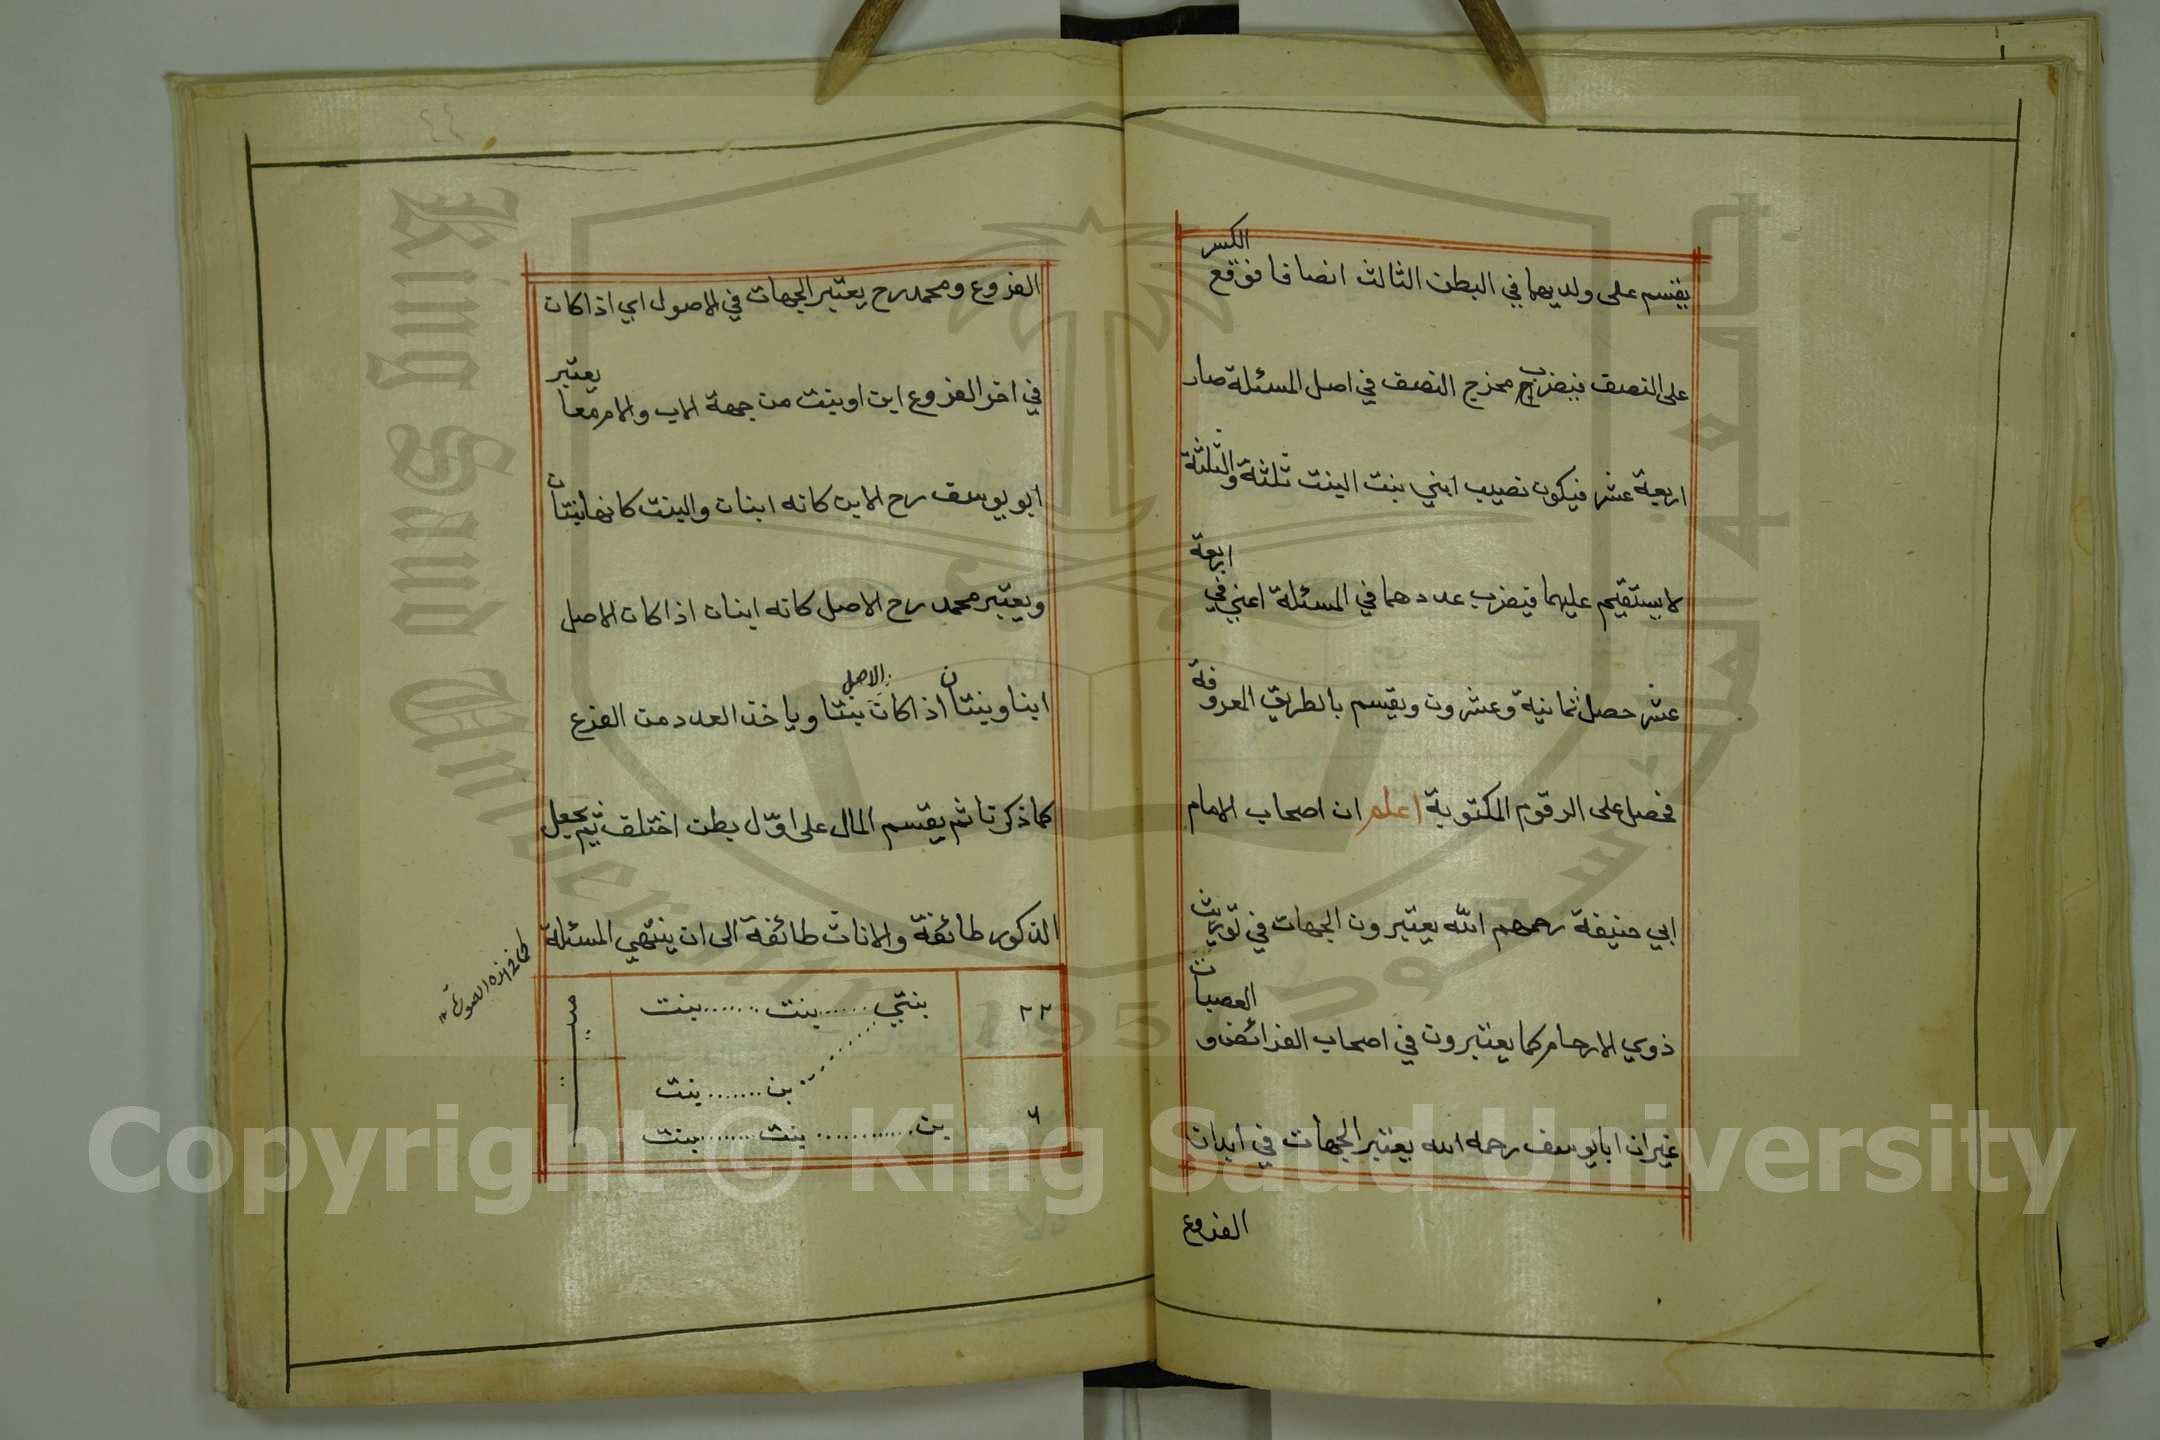 يقسم على ولديهما في البطن الثالث انصافا فوقع الكسر
على النصف فيضرب مخرج النصف في اصل المسئلة صار
اربعة عشر فيكون نصيب ابني بنت البنت ثلثة والثلثة
لا يستقيم عليهما فيضرب عددهما في المسئلة اعني في اربعة
عشر حصل ثمانية وعشرون ويقسم بالطريق المعروفة
فحصل على الرقوم المكتوبة اعلم ان اصحاب الامام
ابي حنيفة رحمهم الله يعتبرون الجهات في توريث
ذوي الارحام كما يعتبرون في اصحاب الفرائض و العصبات
غير ان ابا يوسف رحمه الله يعتبر الجهات في ابدان
الفروع
الفروع ومحمد رح يعتبر الجهات في الاصول اي اذا كان
في اخر الفروع ابن او بنت من جهة الاب والام معا يعتبر
ابو يوسف رح الابن كانه ابنان والبنت كانها بنتان
ويعتبر محمد رح الاصل كانه ابنان اذا كان الاصل
ابنا وبنتان اذا كان الاصل بنتا وياخذ العدد من الفرع
كما ذكرنا ثم يقسم المال على اول بطن اختلف ثم يجعل
الذكور طائفة والاناث طائفة الى ان ينتهي المسئلة
كما في هذه الصورة
٢٢ بنتي بنت بنت
بن بنت
٦ بن بنت بنت
King Saud University
1957
Copyright © King Saud University